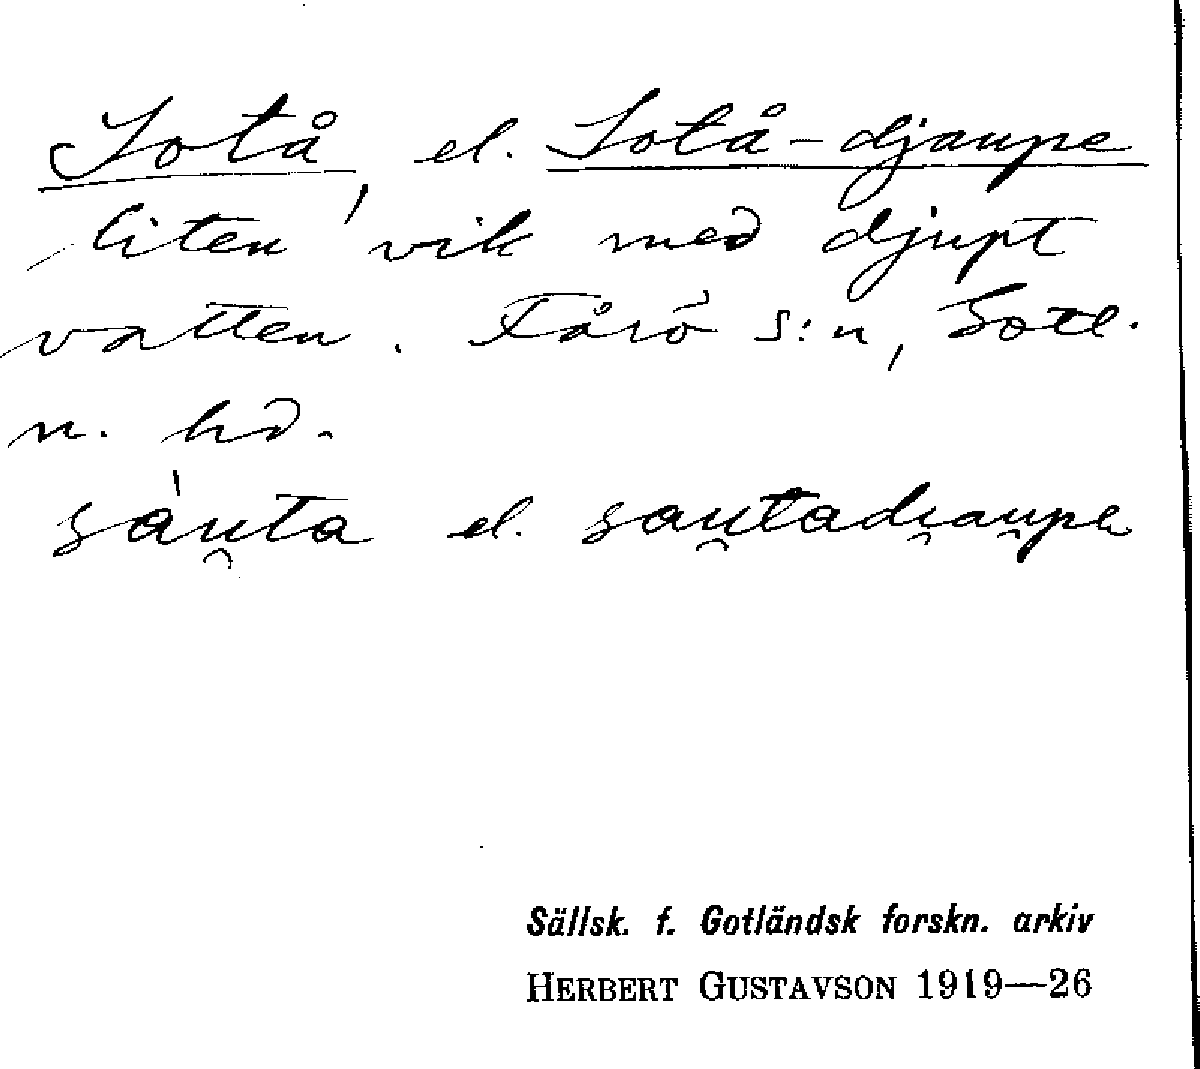 Sotå, el. Sotå-djaupe
liten vik med djupt
vatten. Fårö s:n, Gotl.
n. hd.
sáu̯ta el. sau̯tadi̯au̯pe
Sällsk. f. Gotländsk forskn. arkiv
HERBERT GUSTAVSON 1919—26